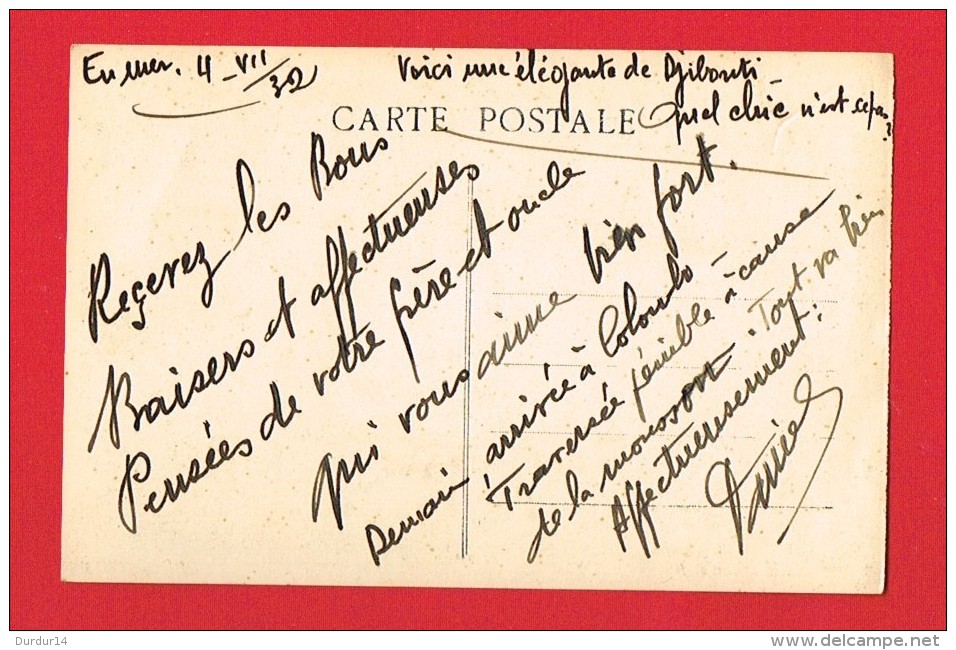 En mer. 4 - VII / 32
Voici une élégante de Djibouti -
quel chic n'est ce pas ?
CARTE POSTALE
Reçevez les Bons
Baisers et affectueuses
Pensées de votre frère et oncle
qui vous aime bien fort.
Demain, arrivée à Colombo -
Traversée pénible à cause
de la mousson. Tout va bien
Affectueusement :
Durdur14
www.delcampe.net